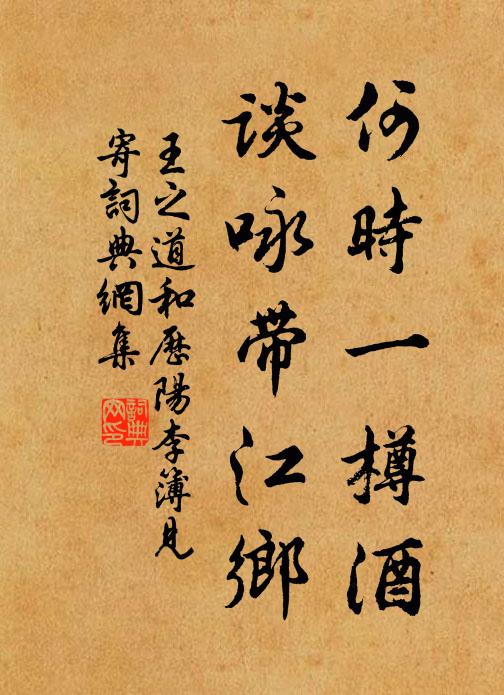 何時一樽酒
談咏帶江鄉
王之道和歷陽李簿見
寄詞典網集
詞典
网印